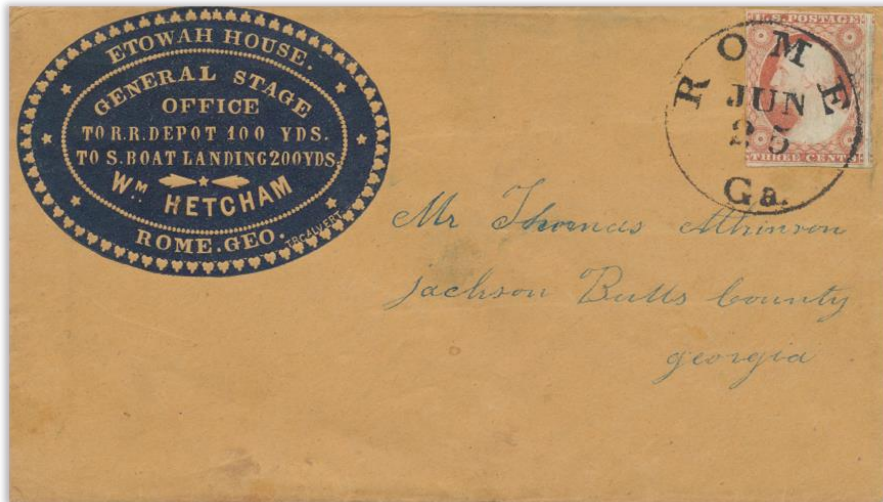 ETOWAH HOUSE.
GENERAL STAGE
OFFICE
TO R.R. DEPOT 100 YDS.
TO S. BOAT LANDING 200 YDS.
WM. HETCHAM
ROME. GEO.
T.B. CALVERT
U.S. POSTAGE
THREE CENTS
ROME
JUN
25
Ga.
Mr Thomas Atkinson
Jackson Butts County
georgia